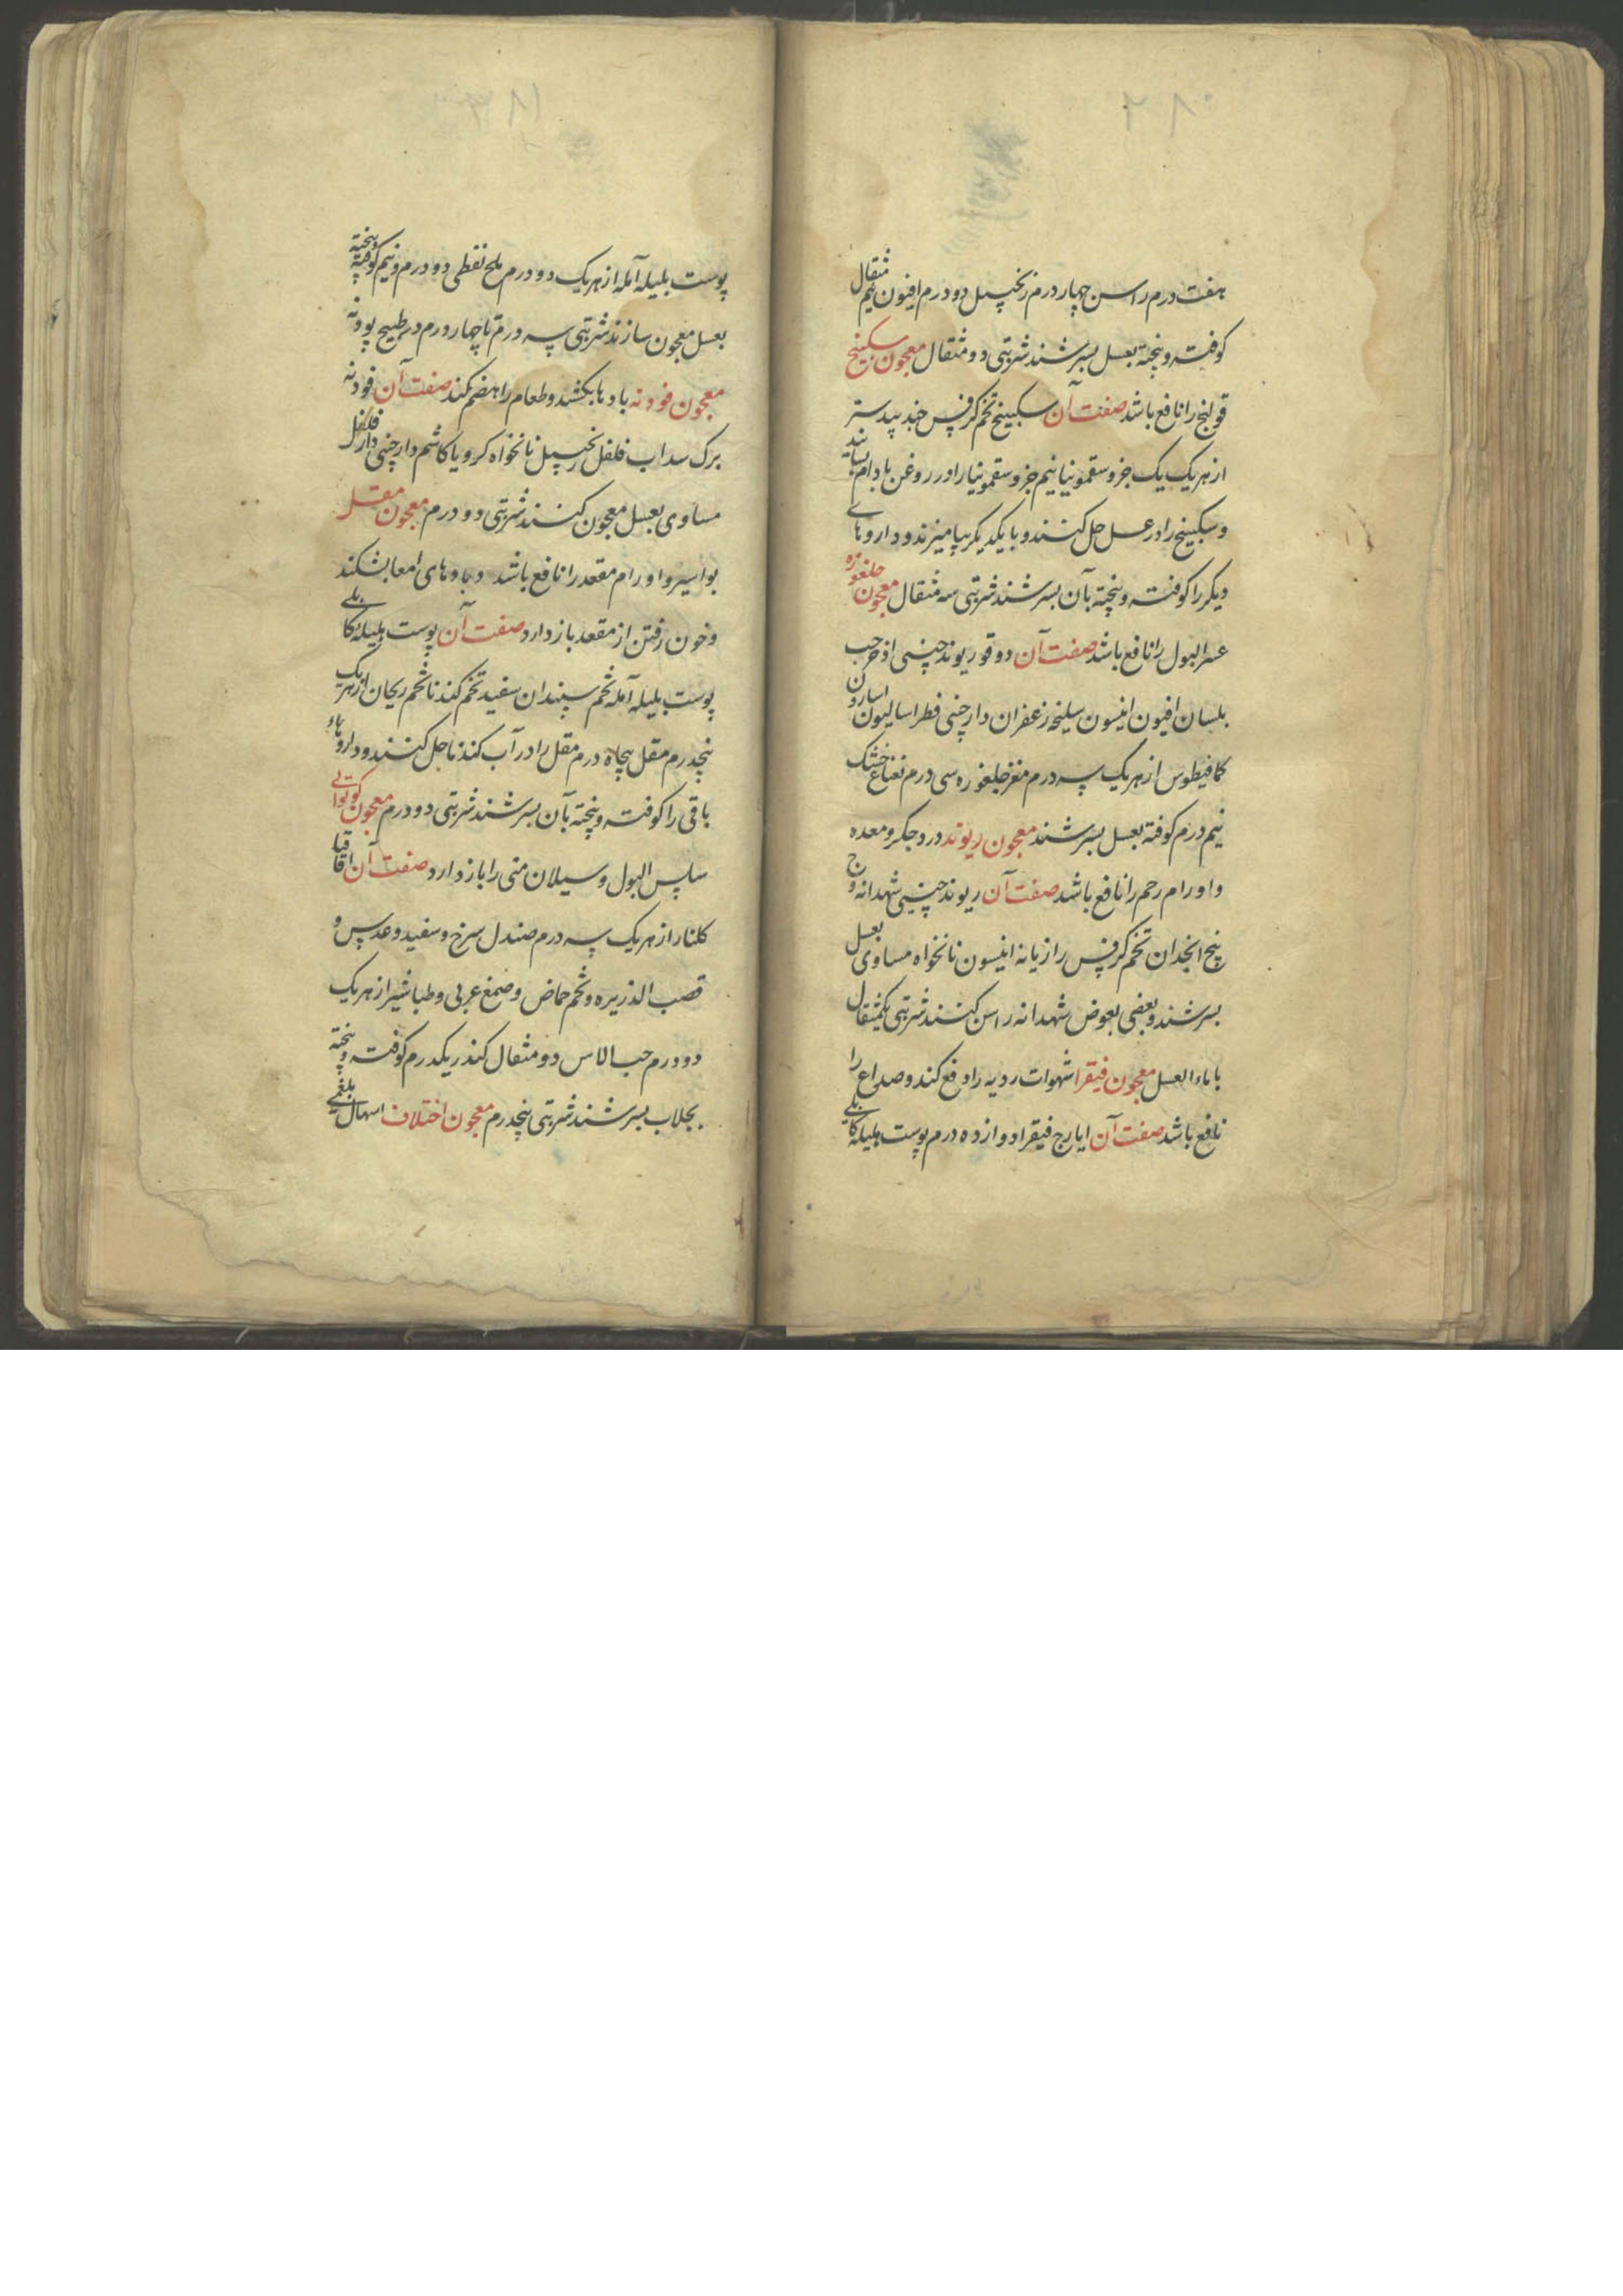 ۲۸۰
هفت درم راسن چهار درم زنجبیل دو درم افیون نیم مثقال
کوفته و پخته بعسل بسرشند شربتی دو مثقال معجون سکبینج
قولنج را نافع باشد صفت آن سکبینج تخم کرفس جند بیدستر
از هریک یک جزو سقمونیا نیم جزو سقمونیا را در روغن بادام بسایند
و سکبینج را در عسل حل کنند و با یکدیکر بیامیزند و داروهای
دیکر را کوفته و پخته بآن بسرشند شربتی سه مثقال معجون جلغوزه
عسر البول را نافع باشد صفت آن دوقو ریوند چینی اذخر حب
بلسان افیون انیسون سلیخه زعفران دارچنی فطراسالیون اسارون
کمافیطوس از هریک سه درم مغز جلغوزه سی درم نعناع خشک
نیم درم کوفته بعسل بسرشند معجون ریوند درد جکر و معده
و اورام رحم را نافع باشد صفت آن ریوند چینی شهدانه وج
بیخ انجدان تخم کرفس رازیانه انیسون نانخواه مساوی بعسل
بسرشند و بعضی بعوض شهدانه راسن کنند شربتی یکمثقال
با ماء العسل معجون فیقرا شهوات ردیه را دفع کند و صداع را
نافع باشد صفت آن ایارج فیقرا دوازده درم پوست هلیله کابلی
۳۸۱
پوست بلیله آمله از هریک دو درم ملح نفطی دو درم و نیم کوفته و پخته
بعسل معجون سازند شربتی سه درم تا چهار درم در طبیخ پودنه
معجون فودنه بادها بکشد و طعام را هضم کند صفت آن فودنه
برک سداب فلفل زنجبیل نانخواه کرویا کاشم دارچنی دار فلفل
مساوی بعسل معجون کنند شربتی دو درم معجون مقل
بواسیر و اورام مقعد را نافع باشد و بادهای امعا بشکند
و خون رفتن از مقعد باز دارد صفت آن پوست هلیله کابلی
پوست بلیله آمله تخم سپندان سفید تخم کندنا تخم ریحان از هریک
پنجدرم مقل پنجاه درم مقل را در آب کندنا حل کنند و داروهاء
باقی را کوفته و پخته بآن بسرشند شربتی دو درم معجون
سلس البول و سیلان منی را باز دارد صفت آن اقاقیا
کلنار از هریک سه درم صندل سرخ و سفید و عدس و
قصب الذریره و تخم حماض و صمغ عربی و طباشیر از هریک
دو درم حب الاس دو مثقال کندر یکدرم کوفته و پخته
بجلاب بسرشند شربتی پنجدرم معجون اختلاف اسهال بلغمی